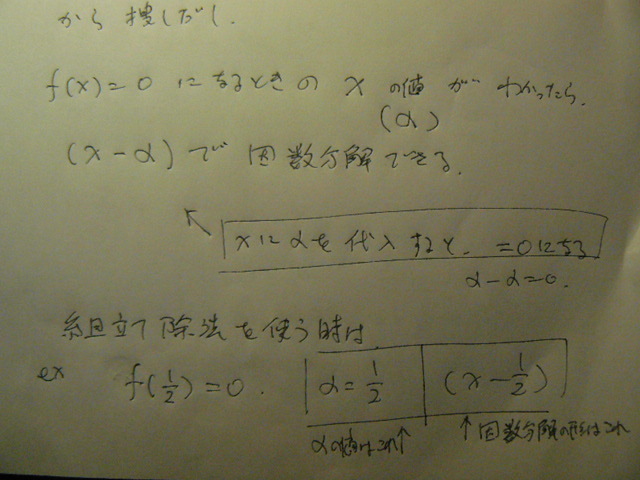 から捜しだし.
f(x)=0 になるときの x の値が わかったら.
(α)
(x-α)で 因数分解できる.
↖
xにαを代入すると. =0になる
α-α=0.
組立て除法を使う時は
ex f(1/2)=0. α=1/2 (x-1/2)
αの値はこれ↑ ↑因数分解の形はこれ